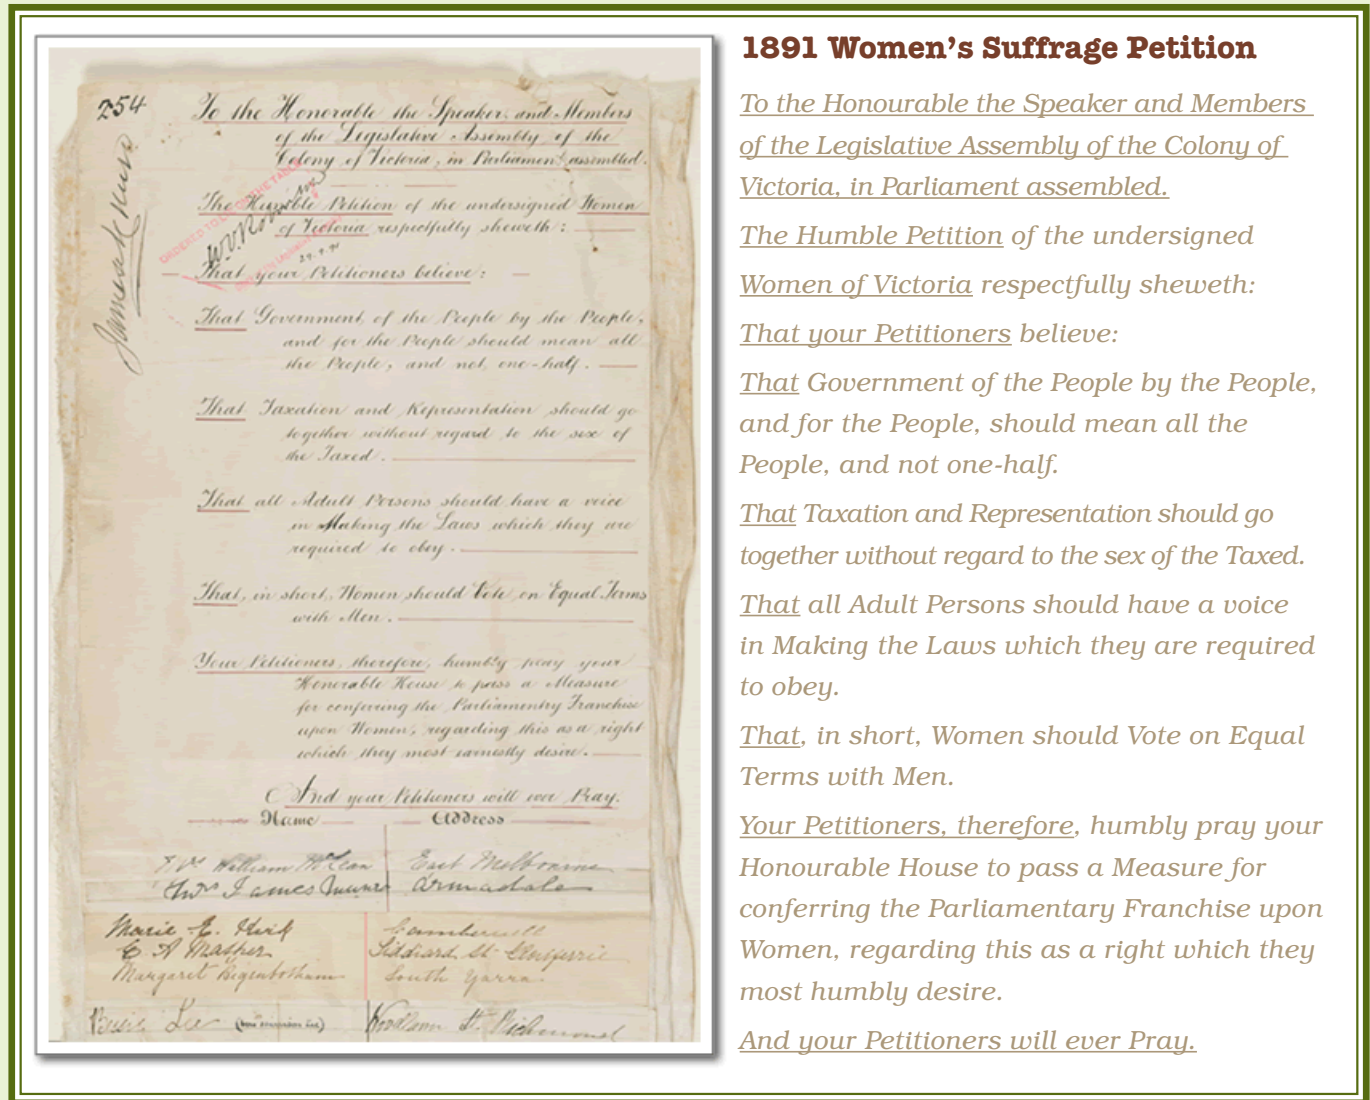 254
To the Honorable the Speaker, and Members
of the Legislative Assembly of the
Colony of Victoria, in Parliament assembled.
The Humble Petition of the undersigned Women
of Victoria respectfully sheweth:
That your Petitioners believe:
That Government of the People by the People,
and for the People should mean all
the People, and not one-half.
That Taxation and Representation should go
together without regard to the sex of
the Taxed.
That all Adult Persons should have a voice
in Making the Laws which they are
required to obey.
That, in short, Women should Vote on Equal Terms
with Men.
Your Petitioners, therefore, humbly pray your
Honorable House to pass a Measure
for conferring the Parliamentry Franchise
upon Women, regarding this as a right
which they most earnestly desire.
And your Petitioners will ever Pray.
Name Address
William McLean East Melbourne
Mrs James Munro Armadale
Marie E. Kirk Camberwell
Margaret Higinbotham South Yarra
Lee Richmond
James Munro
ORDERED TO LIE ON THE TABLE
1891 Women's Suffrage Petition
To the Honourable the Speaker and Members
of the Legislative Assembly of the Colony of
Victoria, in Parliament assembled.
The Humble Petition of the undersigned
Women of Victoria respectfully sheweth:
That your Petitioners believe:
That Government of the People by the People,
and for the People, should mean all the
People, and not one-half.
That Taxation and Representation should go
together without regard to the sex of the Taxed.
That all Adult Persons should have a voice
in Making the Laws which they are required
to obey.
That, in short, Women should Vote on Equal
Terms with Men.
Your Petitioners, therefore, humbly pray your
Honourable House to pass a Measure for
conferring the Parliamentary Franchise upon
Women, regarding this as a right which they
most humbly desire.
And your Petitioners will ever Pray.